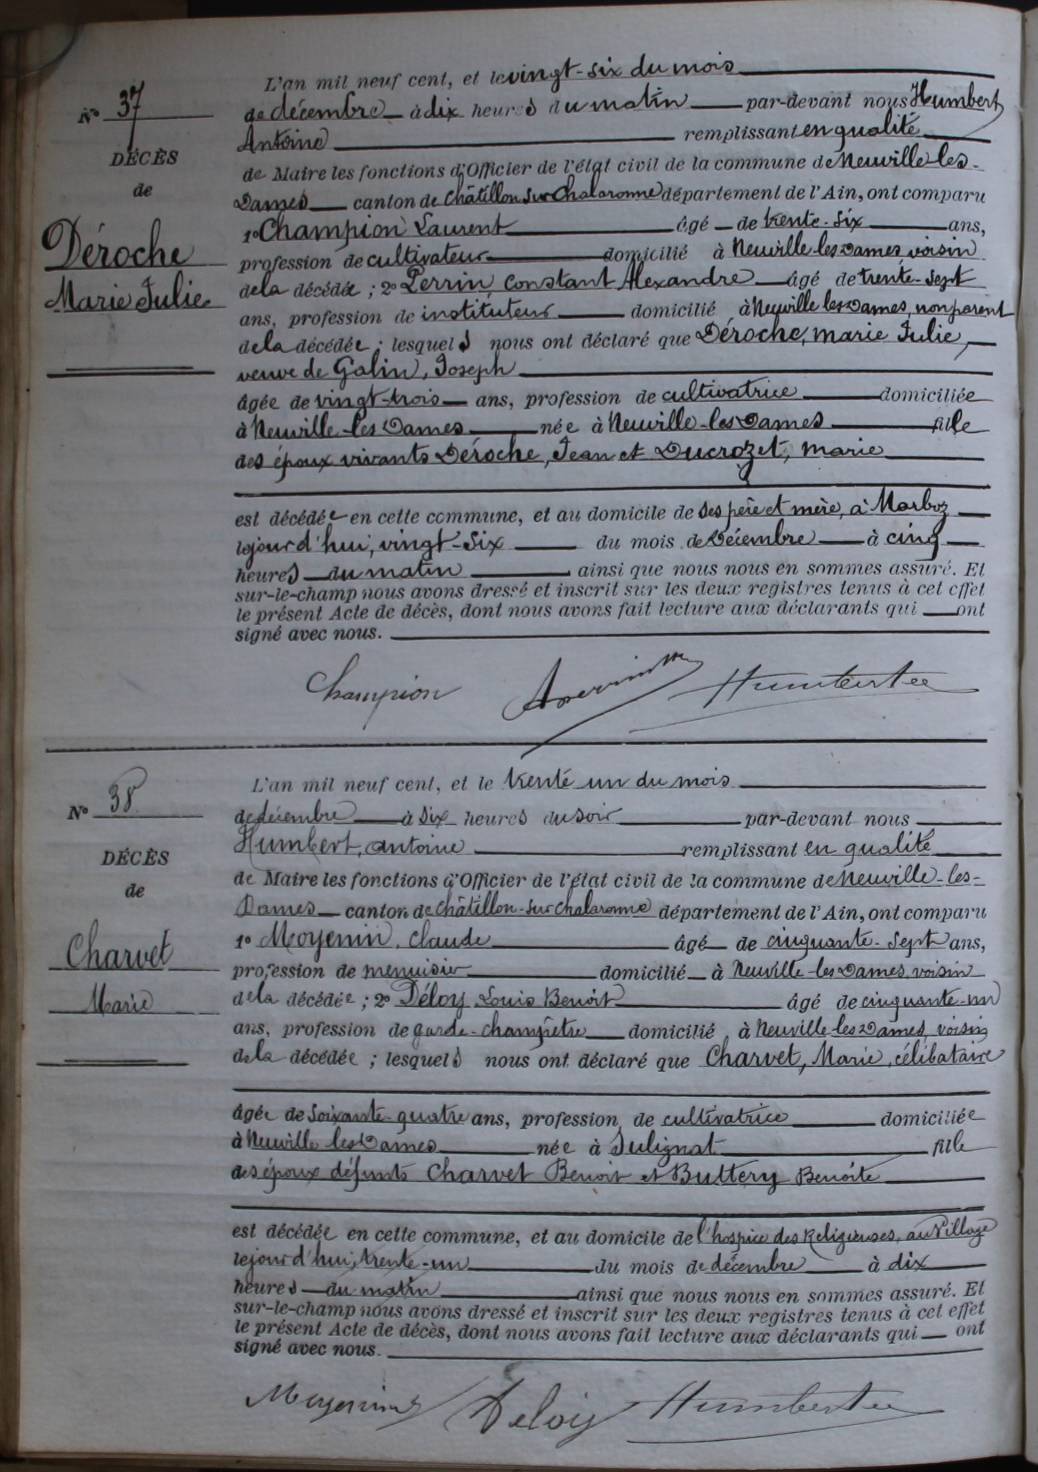 N° 37
DÉCÈS
de
Déroche
Marie Julie
L'an mil neuf cent, et le vingt-six du mois
de décembre à dix heures du matin par-devant nous Humbert
Antoine remplissant en qualité
de Maire les fonctions d'Officier de l'état civil de la commune de Neuville-les-
Dames canton de Châtillon sur Chalaronne département de l'Ain, ont comparu
1° Champion Laurent âgé de trente-six ans,
profession de cultivateur domicilié à Neuville-les-Dames, voisin
de la décédée ; 2° Perrin, Constant Alexandre âgé de trente-sept
ans, profession de instituteur domicilié à Neuville les Dames, non parent
de la décédée ; lesquels nous ont déclaré que Déroche, Marie Julie,
veuve de Galin, Joseph
âgée de vingt-trois ans, profession de cultivatrice domiciliée
à Neuville-les-Dames née à Neuville-les-Dames fille
des époux vivants Déroche, Jean et Ducrozet, Marie
est décédée en cette commune, et au domicile de ses père et mère, à Marboz
le jour d'hui, vingt-six du mois de Décembre à cinq
heures du matin ainsi que nous nous en sommes assuré. Et
sur-le-champ nous avons dressé et inscrit sur les deux registres tenus à cet effet
le présent Acte de décès, dont nous avons fait lecture aux déclarants qui ont
signé avec nous.
Champion Aperrin Humbert
N° 38
DÉCÈS
de
Charvet
Marie
L'an mil neuf cent, et le trente un du mois
de décembre à six heures du soir par-devant nous
Humbert, Antoine remplissant en qualité
de Maire les fonctions d'Officier de l'état civil de la commune de Neuville-les-
Dames canton de Châtillon-sur Chalaronne département de l'Ain, ont comparu
1° Moyenin, Claude âgé de cinquante-sept ans,
profession de menuisier domicilié à Neuville-les-Dames, voisin
de la décédée ; 2° Déloy, Louis Benoit âgé de cinquante-un
ans, profession de garde-champêtre domicilié à Neuville les Dames, voisin
de la décédée ; lesquels nous ont déclaré que Charvet, Marie, célibataire
âgée de soixante-quatre ans, profession de cultivatrice domiciliée
à Neuville les Dames née à Sulignat fille
des époux défunts Charvet Benoit et Buttery Benoîte
est décédée en cette commune, et au domicile de l'hospice des Religieuses, au Village
le jour d'hui, trente-un du mois de décembre à dix
heures du matin ainsi que nous nous en sommes assuré. Et
sur-le-champ nous avons dressé et inscrit sur les deux registres tenus à cet effet
le présent Acte de décès, dont nous avons fait lecture aux déclarants qui ont
signé avec nous.
Moyenin Deloiy Humbert